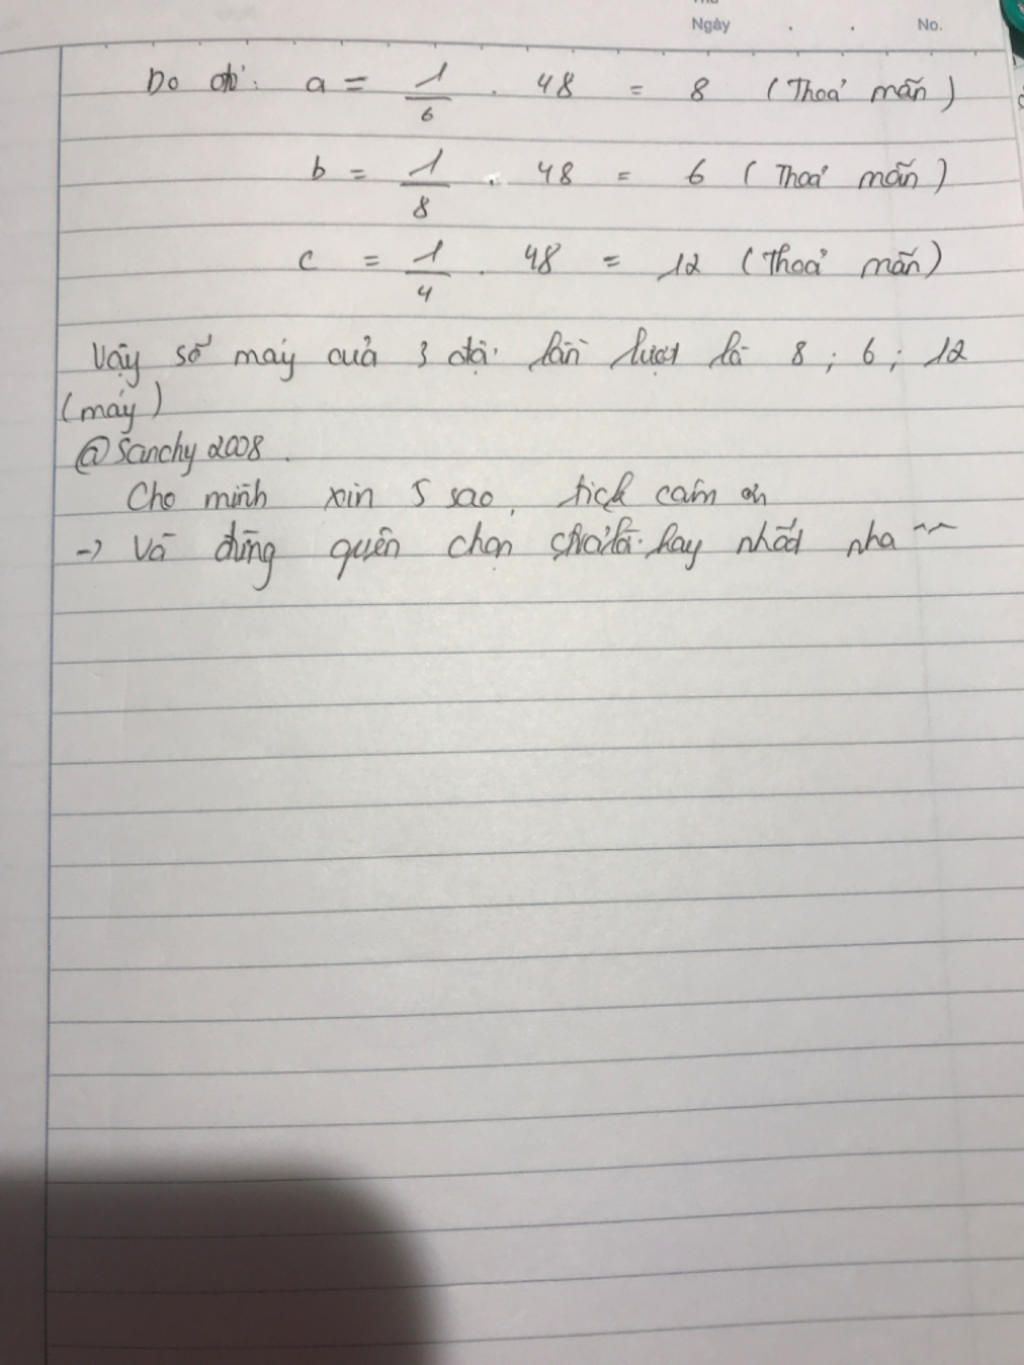 Ngày . . No.
Do đó: a = 1/6 . 48 = 8 (Thoả mãn)
b = 1/8 . 48 = 6 (Thoả mãn)
c = 1/4 . 48 = 12 (Thoả mãn)
Vậy số máy của 3 đội lần lượt là 8 ; 6 ; 12
(máy)
@Sanchy2008.
Cho mình xin 5 sao, tick cảm ơn
-> Và đừng quên chọn hay nhất nha ^^